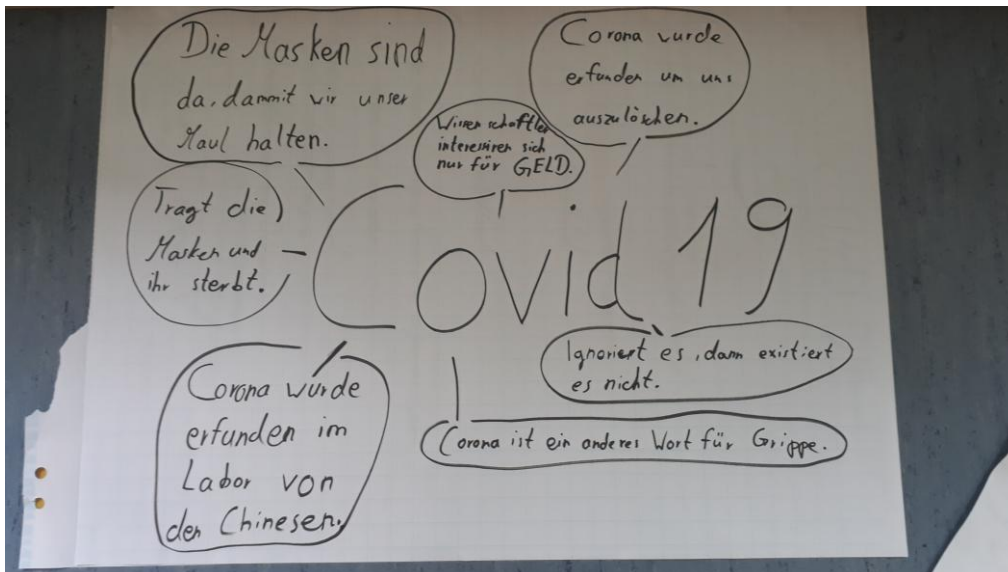 Die Masken sind
da, dammit wir unser
Maul halten.
Corona wurde
erfunden um uns
auszulöschen.
Wissenschaftler
interessiren sich
nur für GELD.
Tragt die
Masken und
ihr sterbt.
Covid 19
Ignoriert es, dann existiert
es nicht.
Corona wurde
erfunden im
Labor von
den Chinesen.
Corona ist ein anderes Wort für Grippe.